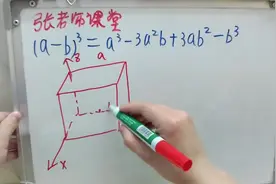 张老师课堂
(a-b)³ = a³-3a²b+3ab²-b³
z a
x